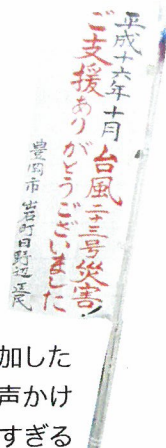 平成十六年十月
台風二十三号災害!
ご支援ありがとうございました
豊岡市出石町日野辺区民
加した
声かけ
すぎる